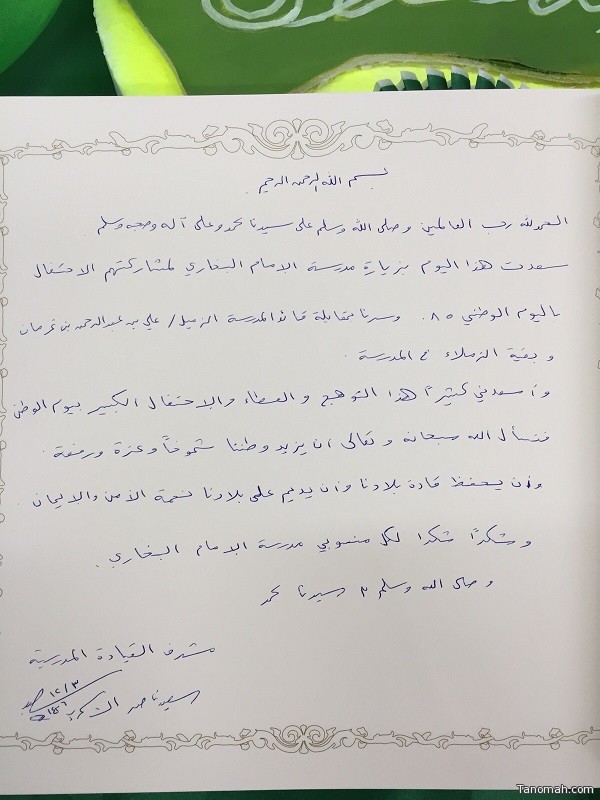 بسم الله الرحمن الرحيم
الحمد لله رب العالمين وصلى الله وسلم على سيدنا محمد وعلى آله وصحبه وسلم
سعدت هذا اليوم بزيارة مدرسة الإمام البخاري لمشاركتهم الاحتفال
باليوم الوطني ٨٥ . وسرنا مقابلة قائد المدرسة الزميل / علي بن عبدالرحمن بن غرمان
وبقية الزملاء في المدرسة .
وأسعدني كثيراً هذا التوهج والعطاء والاحتفال الكبير بيوم الوطن
فنسأل الله سبحانه وتعالى أن يزيد وطننا شموخاً وعزة ورفعة .
وأن يحفظ قادة بلادنا وأن يديم على بلادنا نعمة الأمن والإيمان .
وشكراً شكرا لكل منسوبي مدرسة الإمام البخاري .
وصلى الله وسلم سيدنا محمد
مشرف القيادة المدرسية
١٢/٣
سعيد ناصر
Tanomah.com